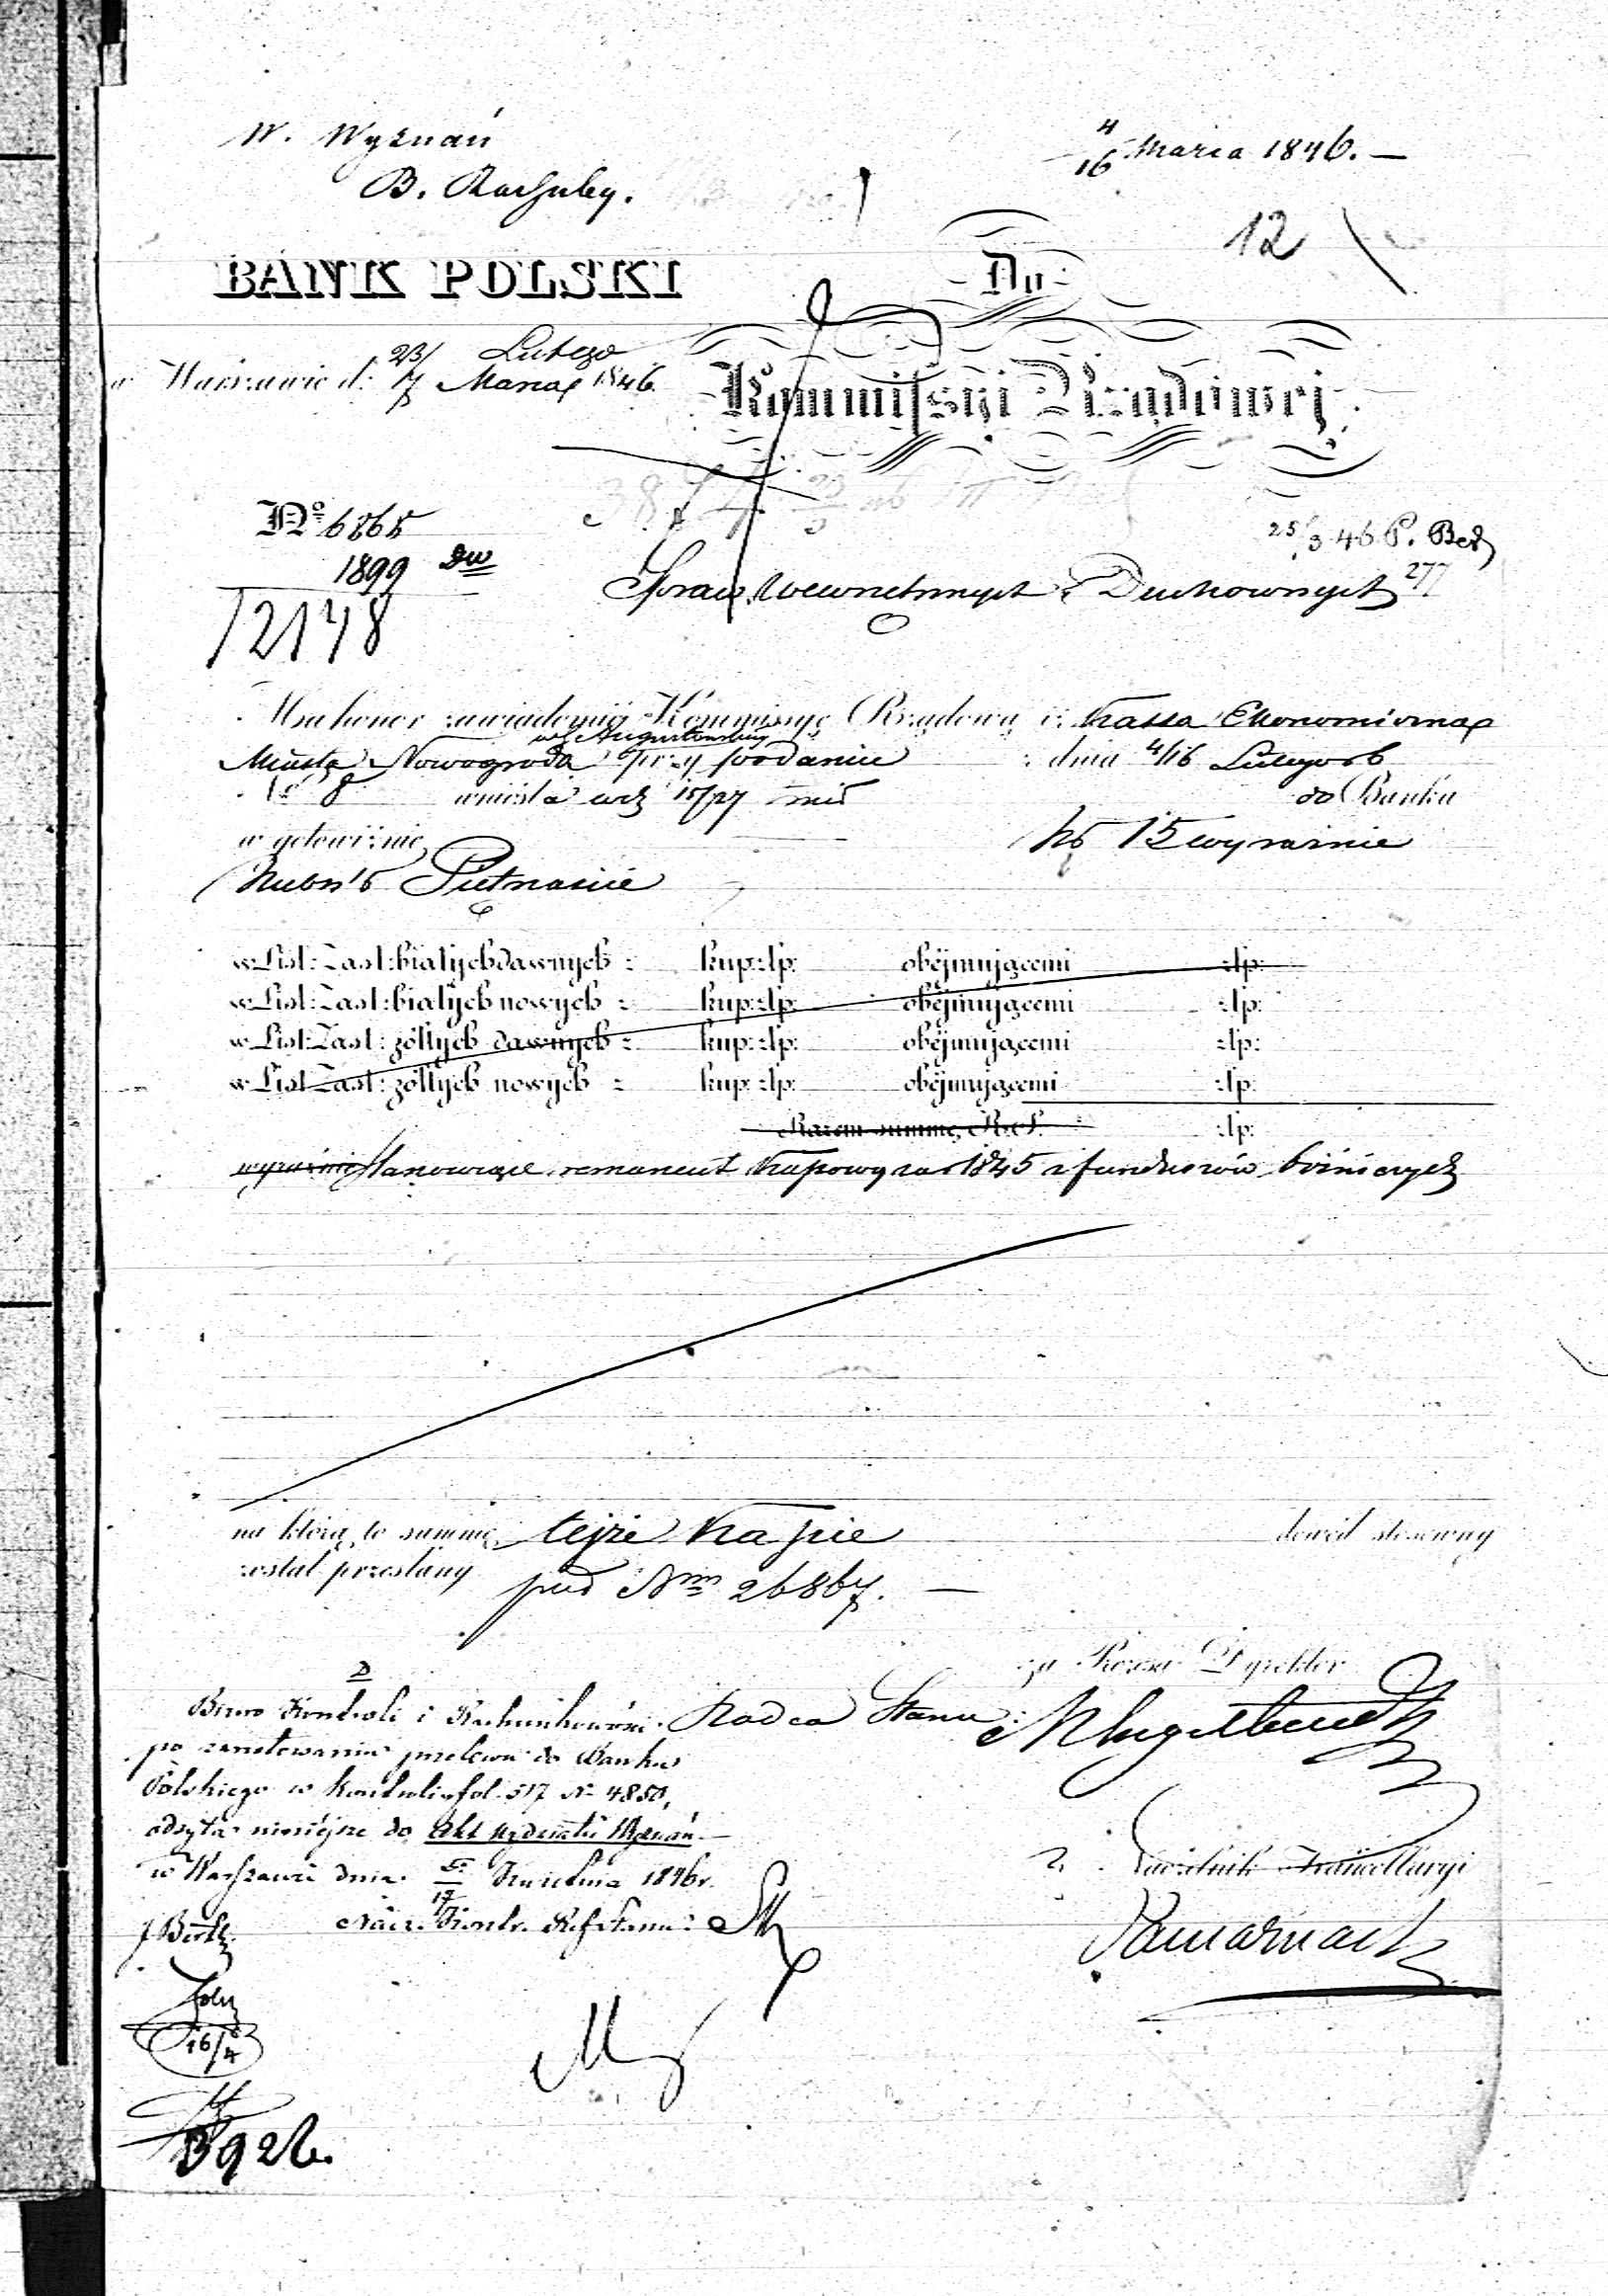 W. Wyznań
B. Rachuby.
4/16 Marca 1846. —
12
BANK POLSKI
Do
w Warszawie d: 23/7 Lutego Marca 1846.
Kommissyi Rządowej
No 6865
1899
12148
25/3 46 P.
277
Spraw Wewnętrznych i Duchownych
Ma honor zawiadomić Kommissyę Rządową iż Kassa Ekonomiczna
Miasta Nowogroda w G. Augustowskiej przy podaniu z dnia 4/16 Lutego r b
No 8 wniosła w d 15/27 do Banku
w gotowiźnie rs 15 wyraźnie
Rubsr Piętnaście
w List: Zast: białych dawnych z kup: złp: obejmującemi złp:
w List: Zast: białych nowych z kup: złp: obejmującemi złp:
w List: Zast: żółtych dawnych z kup: złp: obejmującemi złp:
w List: Zast: żółtych nowych z kup: złp: obejmującemi złp:
Razem summę R.S. złp:
wyraźnie stanowiące remanent kassowy za r 1845 z funduszów bóżniczych
na którą to summę tejże Kassie dowód stosowny
został przesłany pod Nrm 26867. —
za Prezesa Dyrektor
Radca Stanu:
Biuro Kontroli i Rachunkowości
po zanotowaniu przelewu do Banku
Polskiego w kontroli fol. 517 N 4850,
odsyła niniejsze do Akt Wydziału Wyznań
w Warszawie dnia 5/17 Kwietnia 1846 r.
Nacz. Kontr. Ref. Stanu:
Naczelnik Kancellaryi
16/4
3926.